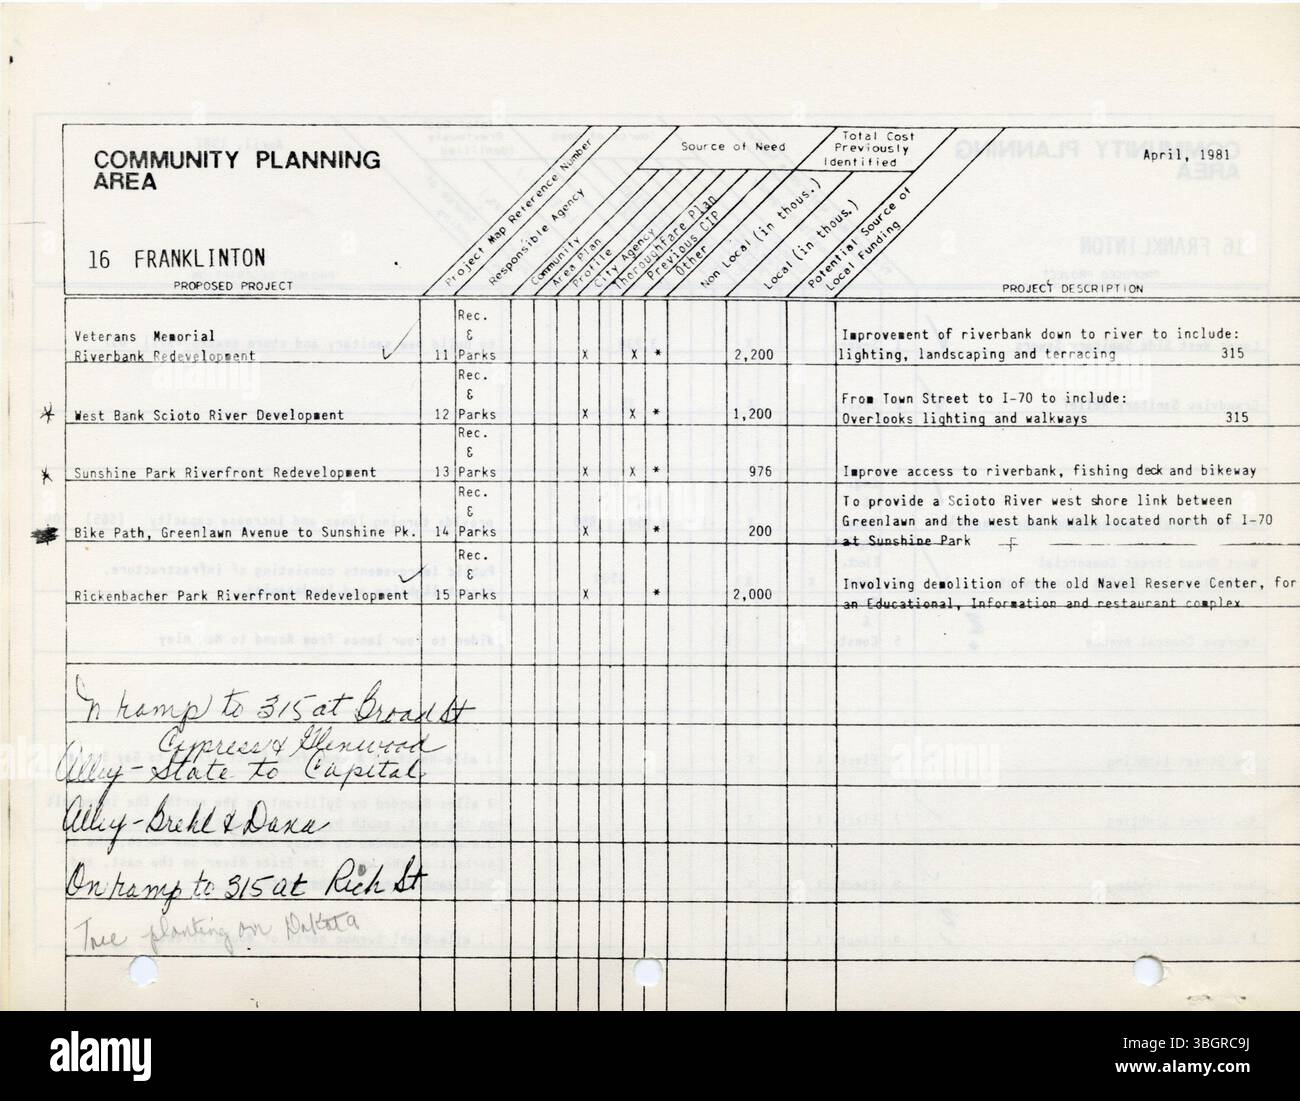 COMMUNITY PLANNING
AREA
16 FRANKLINTON
PROPOSED PROJECT
Project Map Reference Number
Responsible Agency
Community
Area Plan
Profile
City Agency
Thoroughfare Plan
Previous CIP
Other
Source of Need
Non Local (in thous.)
Local (in thous.)
Total Cost
Previously
Identified
Potential Source of
Local Funding
April, 1981
PROJECT DESCRIPTION
Veterans Memorial
Riverbank Redevelopment 11 Rec. & Parks X X * 2,200
Improvement of riverbank down to river to include:
lighting, landscaping and terracing 315
* West Bank Scioto River Development 12 Rec. & Parks X X * 1,200
From Town Street to I-70 to include:
Overlooks lighting and walkways 315
* Sunshine Park Riverfront Redevelopment 13 Rec. & Parks X X * 976
Improve access to riverbank, fishing deck and bikeway
Bike Path, Greenlawn Avenue to Sunshine Pk. 14 Rec. & Parks X * 200
To provide a Scioto River west shore link between
Greenlawn and the west bank walk located north of I-70
at Sunshine Park
Rickenbacher Park Riverfront Redevelopment 15 Rec. & Parks X * 2,000
Involving demolition of the old Navel Reserve Center, for
an Educational, Information and restaurant complex
ramp to 315 at Broad St
Cypress & Glenwood
Alley - State to Capital
Alley - Brehl & Dana
On ramp to 315 at Rich St
Tree planting on Dakota
alamy
Image ID: 3BGRC9J
www.alamy.com